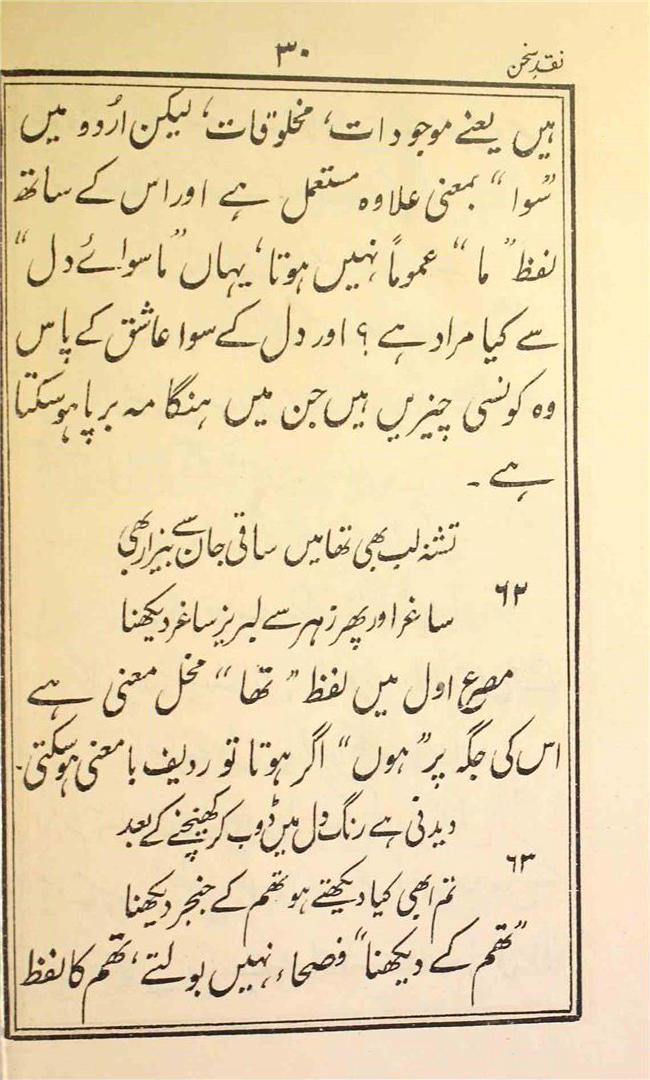 نقدِ سخن
۳۰
ہیں یعنے موجودات، مخلوقات، لیکن اُردو میں
”سوا“ بمعنی علاوہ مستعمل ہے اور اس کے ساتھ
لفظ ”ما“ عموماً نہیں ہوتا، یہاں ”ماسوائے دل“
سے کیا مراد ہے؟ اور دل کے سوا عاشق کے پاس
وہ کونسی چیزیں ہیں جن میں ہنگامہ برپا ہوسکتا
ہے۔
تشنہ لب بھی تھا میں ساقی جان سے بیزار بھی
۶۲
ساغر اور پھر زہر سے لبریز ساغر دیکھنا
مصرع اول میں لفظ ”تھا“ مخل معنی ہے
اس کی جگہ پر ”ہوں“ اگر ہوتا تو ردیف بامعنی ہوسکتی۔
دیدنی ہے رنگ دل میں ڈوب کر کھینچنے کے بعد
۶۳
تم ابھی کیا دیکھتے ہو تھم کے خنجر دیکھنا
”تھم کے دیکھنا“ فصحاء نہیں بولتے، تھم کا لفظ